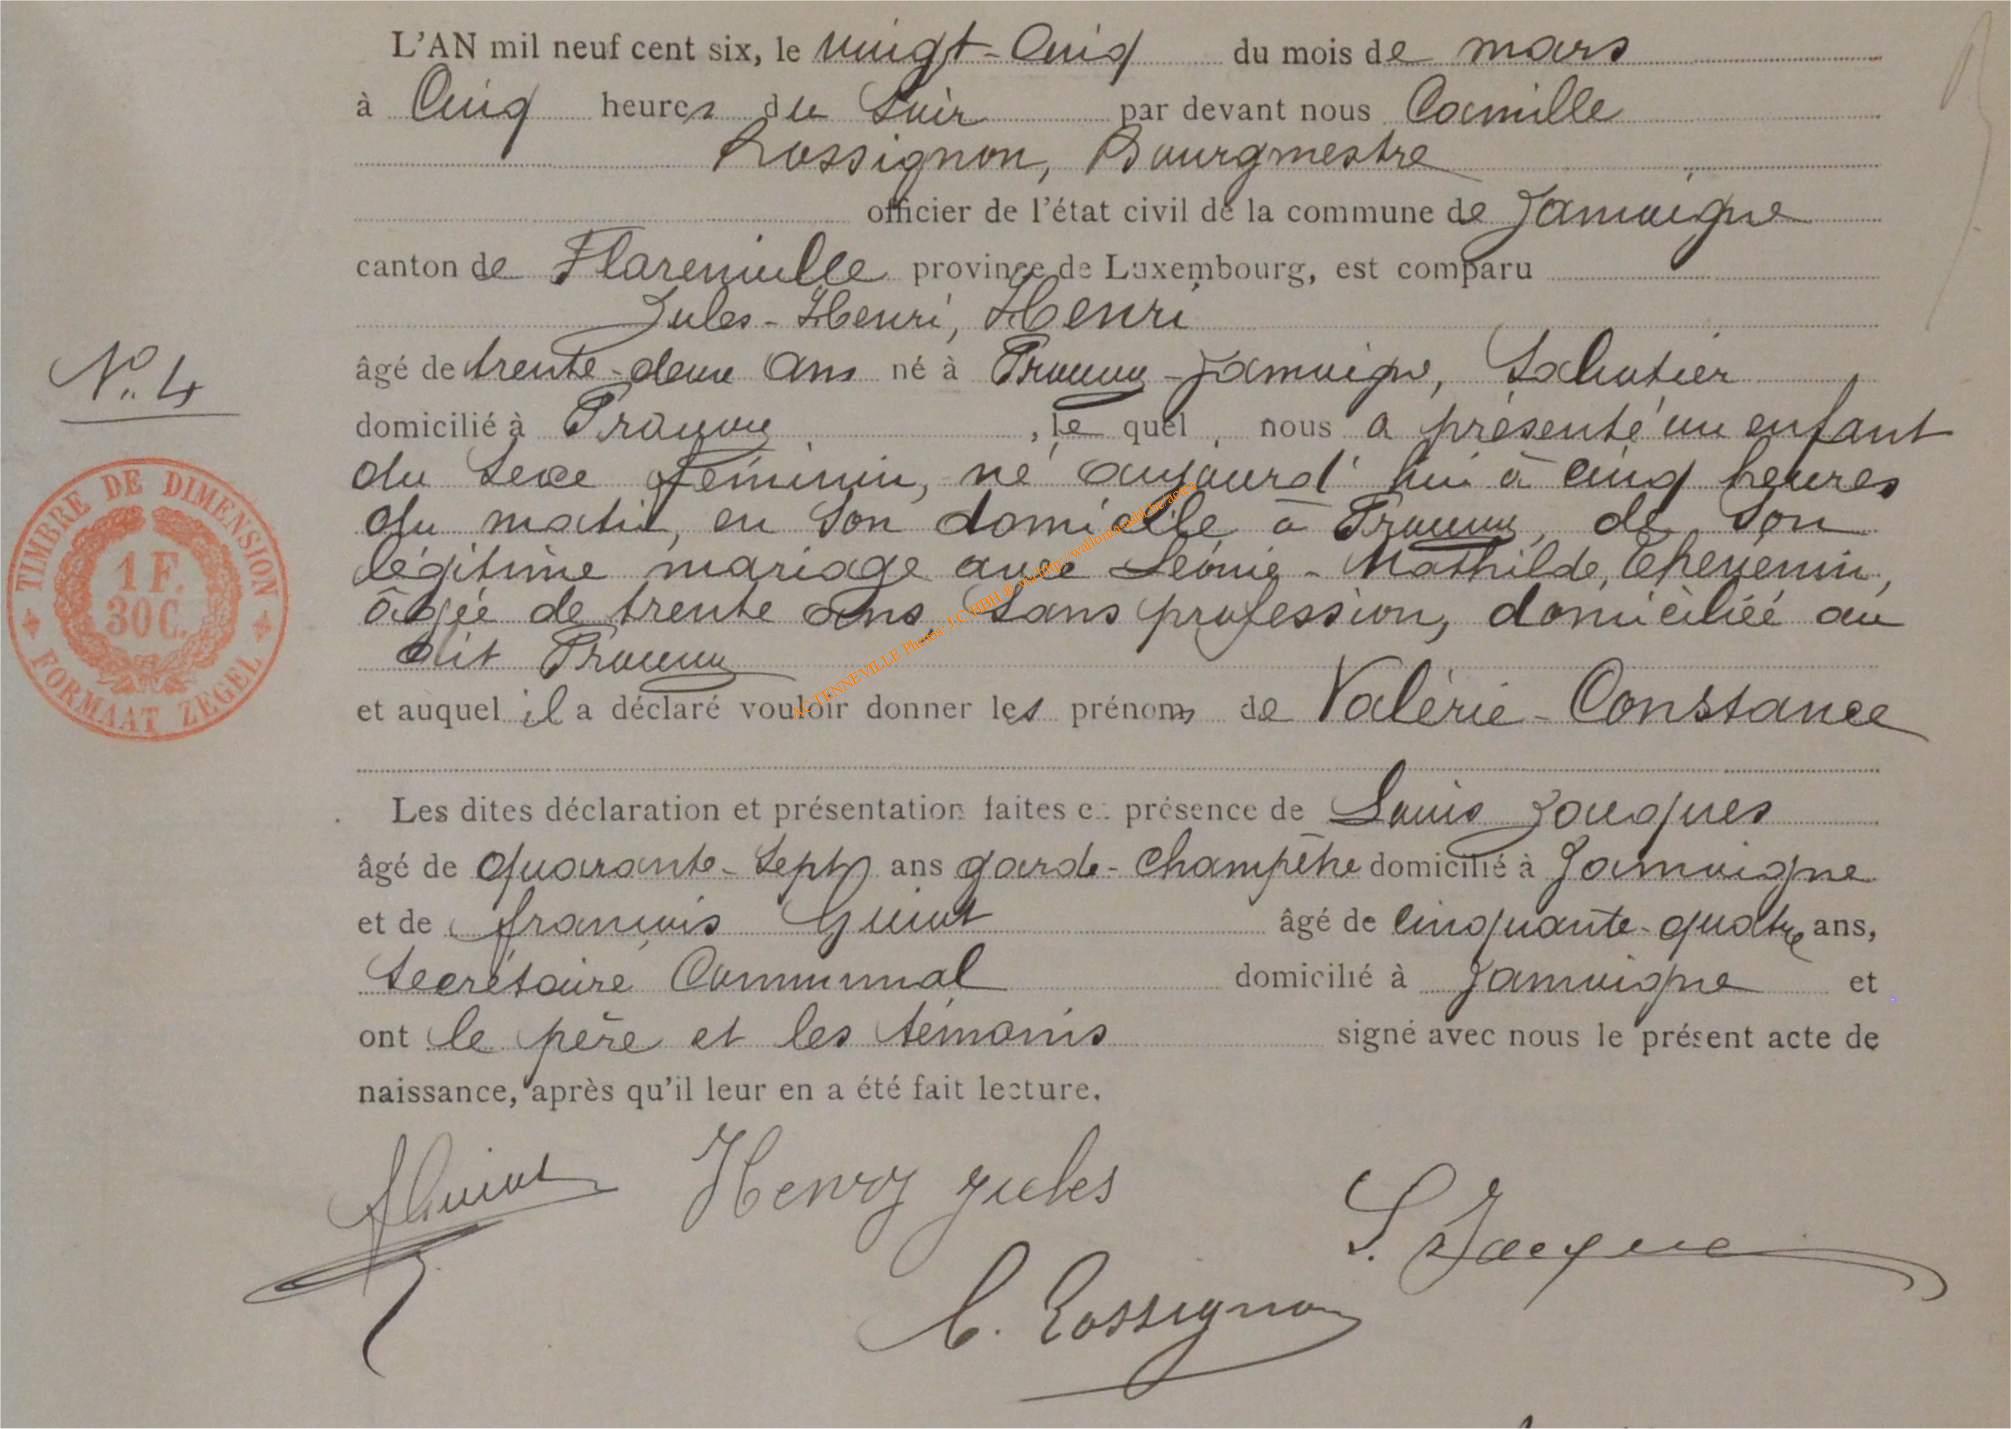 L'AN mil neuf cent six, le vingt-Cinq du mois de mars
à Cinq heures du Soir par devant nous Camille
Rossignon, Bourgmestre
officier de l'état civil de la commune de Jamoigne
canton de Florenville province de Luxembourg, est comparu
Jules-Henri, Henri
N°. 4
âgé de trente-deux ans né à Prouvy-Jamoigne, Sabotier
domicilié à Prouvy, le quel, nous a présenté un enfant
du Sexe féminin, né aujourd'hui à cinq heures
du matin, en Son domicile à Prouvy, de Son
légitime mariage avec Léonie-Mathilde, Thévenin,
âgée de trente ans, Sans profession, domiciliée au
dit Prouvy
et auquel il a déclaré vouloir donner les prénoms de Valérie-Constance
TIMBRE DE DIMENSION
1 F.
30 C.
FORMAAT ZEGEL
Les dites déclaration et présentation faites en présence de Louis Jacques
âgé de quarante-Sept ans garde-Champêtre domicilié à Jamoigne
et de françois Guiot âgé de cinquante-quatre ans,
Secrétaire Communal domicilié à Jamoigne et
ont le père et les témoins signé avec nous le présent acte de
naissance, après qu'il leur en a été fait lecture.
fGuiot Henry Jules
L. Jacques
C. Rossignon